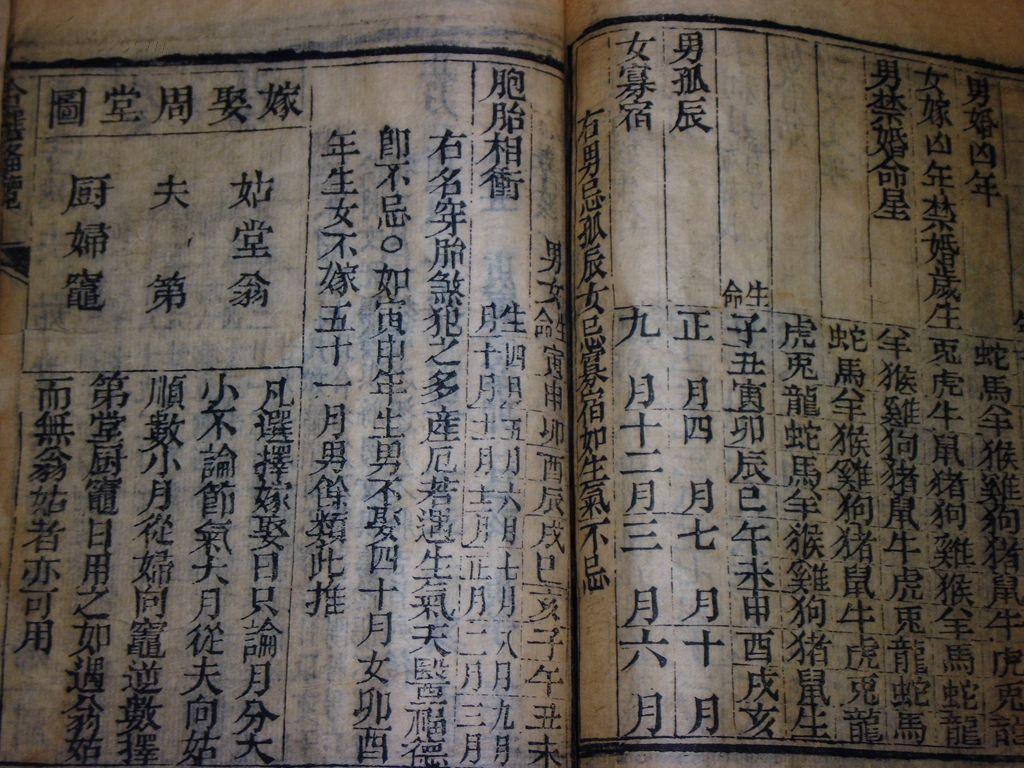 男婚凶年 蛇馬羊猴雞狗猪鼠牛虎兎龍
女嫁凶年禁婚歲生 兎虎牛鼠猪狗雞猴羊馬蛇龍
男禁婚命星 羊猴雞狗猪鼠牛虎兎龍蛇馬
蛇馬羊猴雞狗猪鼠牛虎兎龍
虎兎龍蛇馬羊猴雞狗猪鼠生
生命 子丑寅卯辰巳午未申酉戌亥
男孤辰 正月四月七月十月
女寡宿 九月十二月三月六月
右男忌孤辰女忌寡宿如生氣不忌
男女命生 寅申卯酉辰戌巳亥子午丑未
胞胎相衝 生月 四月五月六月七月八月九月
十月十一月十二月正月二月三月
右名穿胎煞犯之多産厄若遇生氣天醫福德
即不忌○如寅申年生男不娶四十月女卯酉
年生女不嫁五十一月男餘類此推
嫁娶周堂圖
姑堂翁
夫第
厨婦竈
凡選擇嫁娶日只論月分大
小不論節氣大月從夫向姑
順數小月從婦向竈逆數擇
第堂厨竈日用之如遇翁姑
而無翁姑者亦可用